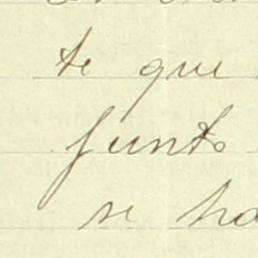 te que
junto
se ha